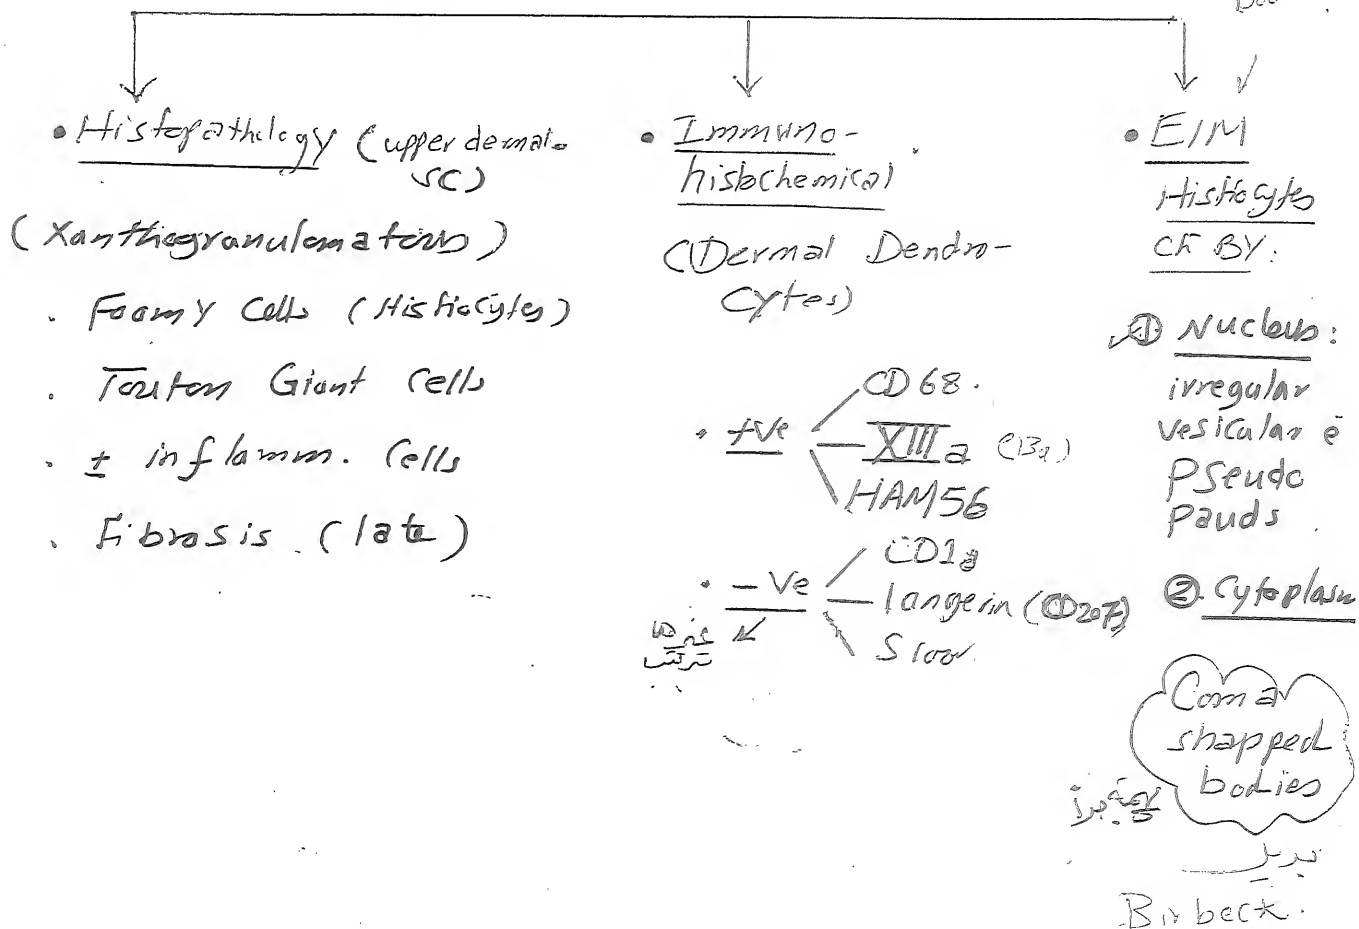 • Histopathology (upper dermal-
SC)
(Xanthogranulomatous)
. Foamy Cells (Histiocytes)
. Touton Giant Cells
. ± inflamm. Cells
. Fibrosis (late)
• Immuno-
histochemical
(Dermal Dendro-
Cytes)
• +ve
CD68.
XIIIa (13a)
HAM56
• -ve
CD1a
langerin (CD207)
S100
• E/M
Histiocytes
Ch BY:
① Nucleus:
irregular
vesicular ē
Pseudo
pauds
② Cytoplasm
Coma
shapped
bodies
بديل
Birbeck.